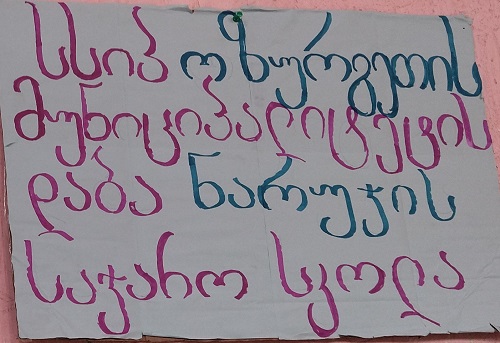 სსიპ ოზურგეთის
მუნიციპალიტეტის
დაბა ნარუჯის
საჯარო სკოლა